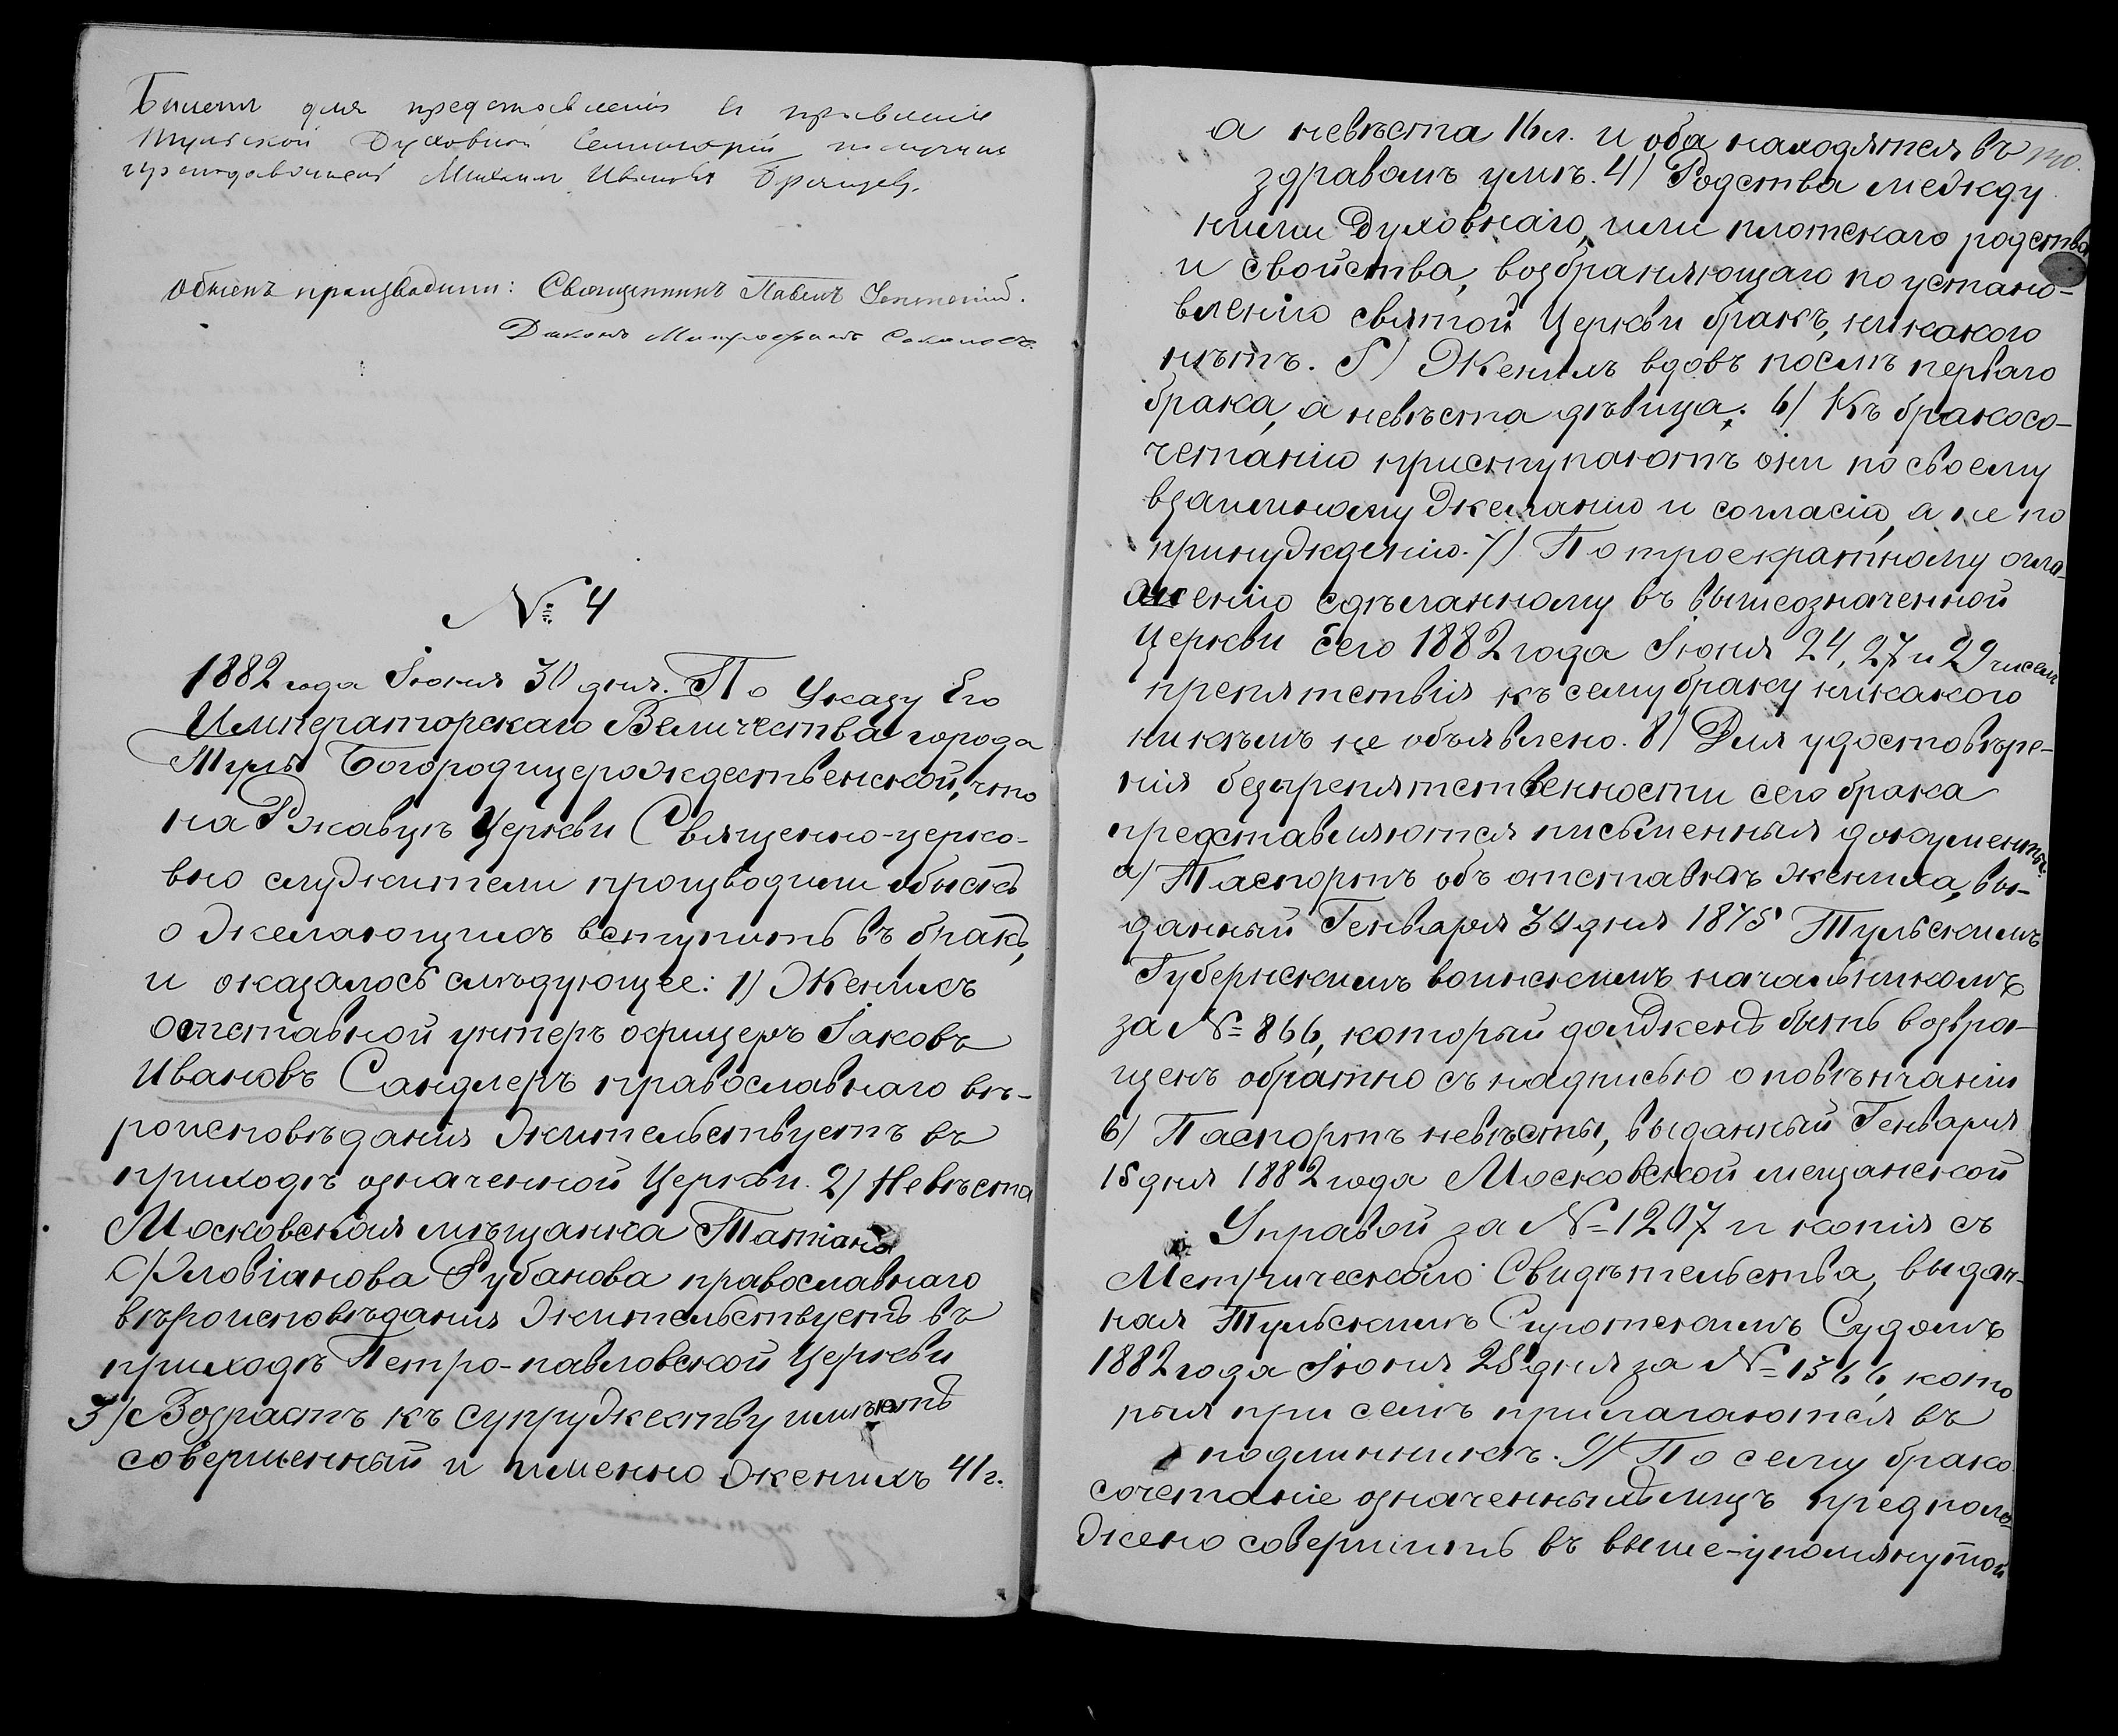 Билетъ для представленія въ правленіе
Тульской Духовной Семинаріи получилъ
преподаватель Михаилъ Ивановъ Брянцевъ.
Обыскъ производили: Священникъ Павелъ
Діаконъ Митрофанъ Соколовъ.
№ 4
1882 года Іюня 30 дня. По Указу Его
Императорскаго Величества города
Тулы Богородицерождественской, что
на Ржавцѣ Церкви Священно-церко-
вно служители производили обыскъ
о желающихъ вступить въ бракъ,
и оказалось слѣдующее: 1) Женихъ
отставной унтеръ офицеръ Іаковъ
Ивановъ Сандлеръ православнаго вѣ-
роисповѣданія жительствуетъ въ
приходѣ означенной Церкви. 2) Невѣста
Московская мѣщанка Татіана
Флавіанова Рубанова православнаго
вѣроисповѣданія жительствуетъ въ
приходѣ Петро-павловской Церкви
3) Возрастъ къ супружеству имѣютъ
совершенный и именно женихъ 41 г.
а невѣста 16 л. и оба находятся въ
здравомъ умѣ. 4) Родства между
ними Духовнаго, или плотскаго родства
и свойства, возбраняющаго по устано-
вленію святой Церкви бракъ, никакого
нѣтъ. 5) Женихъ вдовъ послѣ перваго
брака, а невѣста дѣвица. 6) Къ бракосо-
четанію приступаютъ они по своему
взаимному желанію и согласію, а не по
принужденію. 7) По троекратному огла-
шенію сдѣланному въ вышеозначенной
Церкви сего 1882 года Іюня 24, 27 и 29 чиселъ
препятствія къ сему браку никакого
никѣмъ не объявлено. 8) Для удостовѣре-
нія безпрепятственности сего брака
представляются письменныя документы:
а) Паспортъ объ отставкѣ жениха, вы-
данный Генваря дня 1875 Тульскимъ
Губернскимъ воинскимъ начальникомъ
за № 866, который долженъ быть возвра-
щенъ обратно съ надписью о повѣнчаніи
б) Паспортъ невѣсты, выданный Генваря
15 дня 1882 года Московской мещанской
Управой за № 1207 и копія съ
Метрическаго Свидѣтельства, выдан-
ная Тульскимъ Сиротскимъ Судомъ
1882 года Іюня 25 дня за № 1366, кото
рыя при семъ прилагаются въ
подлинникѣ. 9) По сему брако
сочетаніе означенныхъ лицъ предполо-
жено совершить въ выше-упомянутой